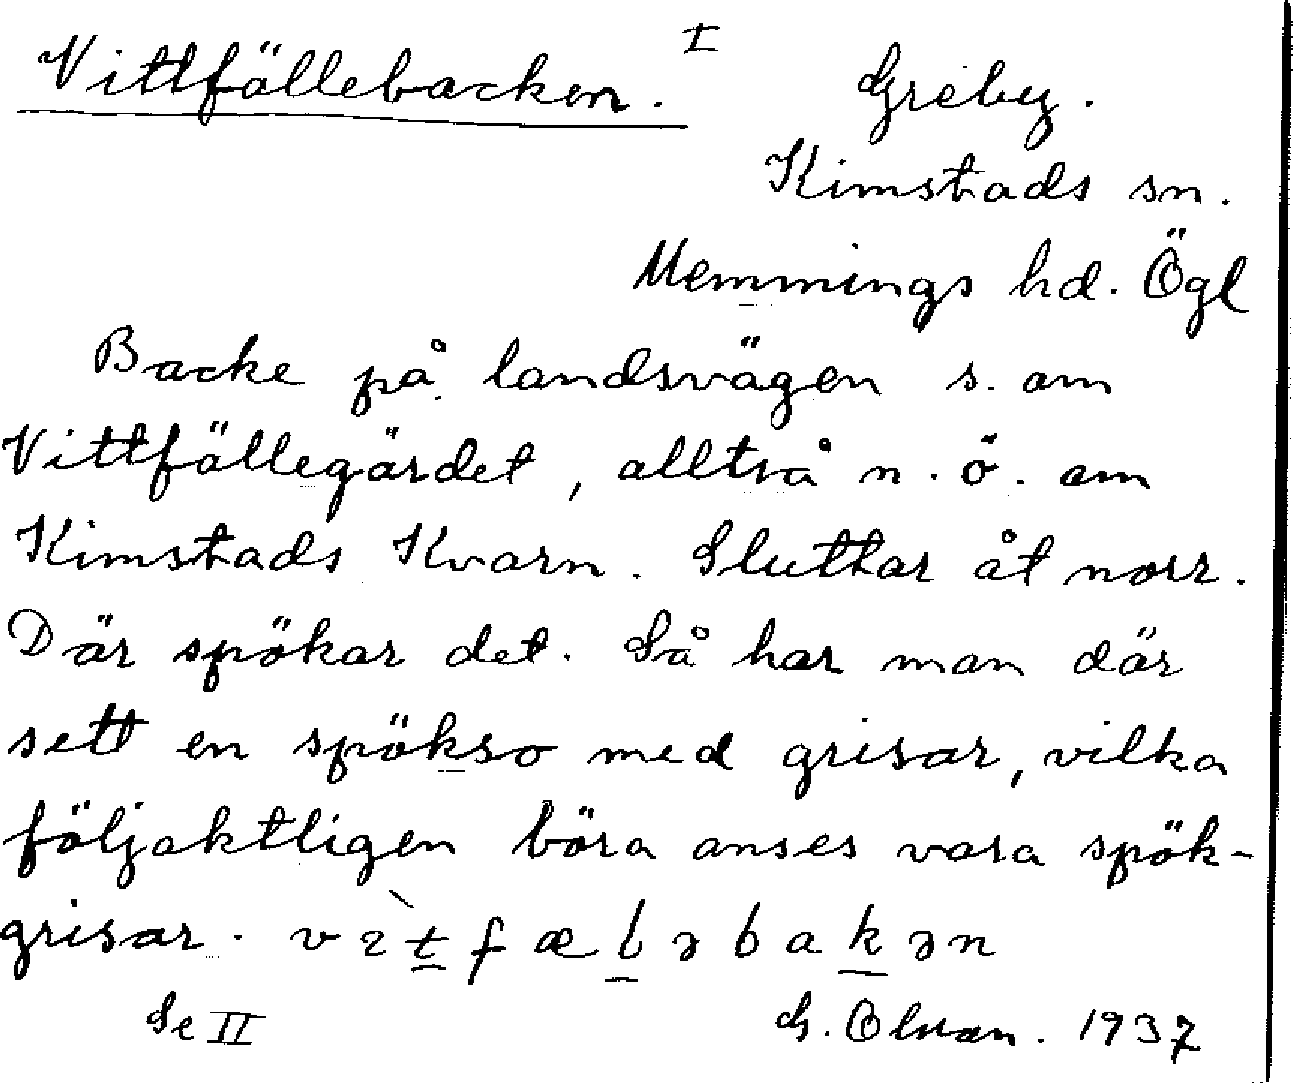 Vittfällebacken. I
Greby.
Kimstads sn.
Memmings hd. Ögl
Backe på landsvägen s. om
Vittfällegärdet, alltså n. ö. om
Kimstads Kvarn. Sluttar åt norr.
Där spökar det. Så har man där
sett en spökso med grisar, vilka
följaktligen böra anses vara spök-
grisar.
Se II
G. Olsson. 1937